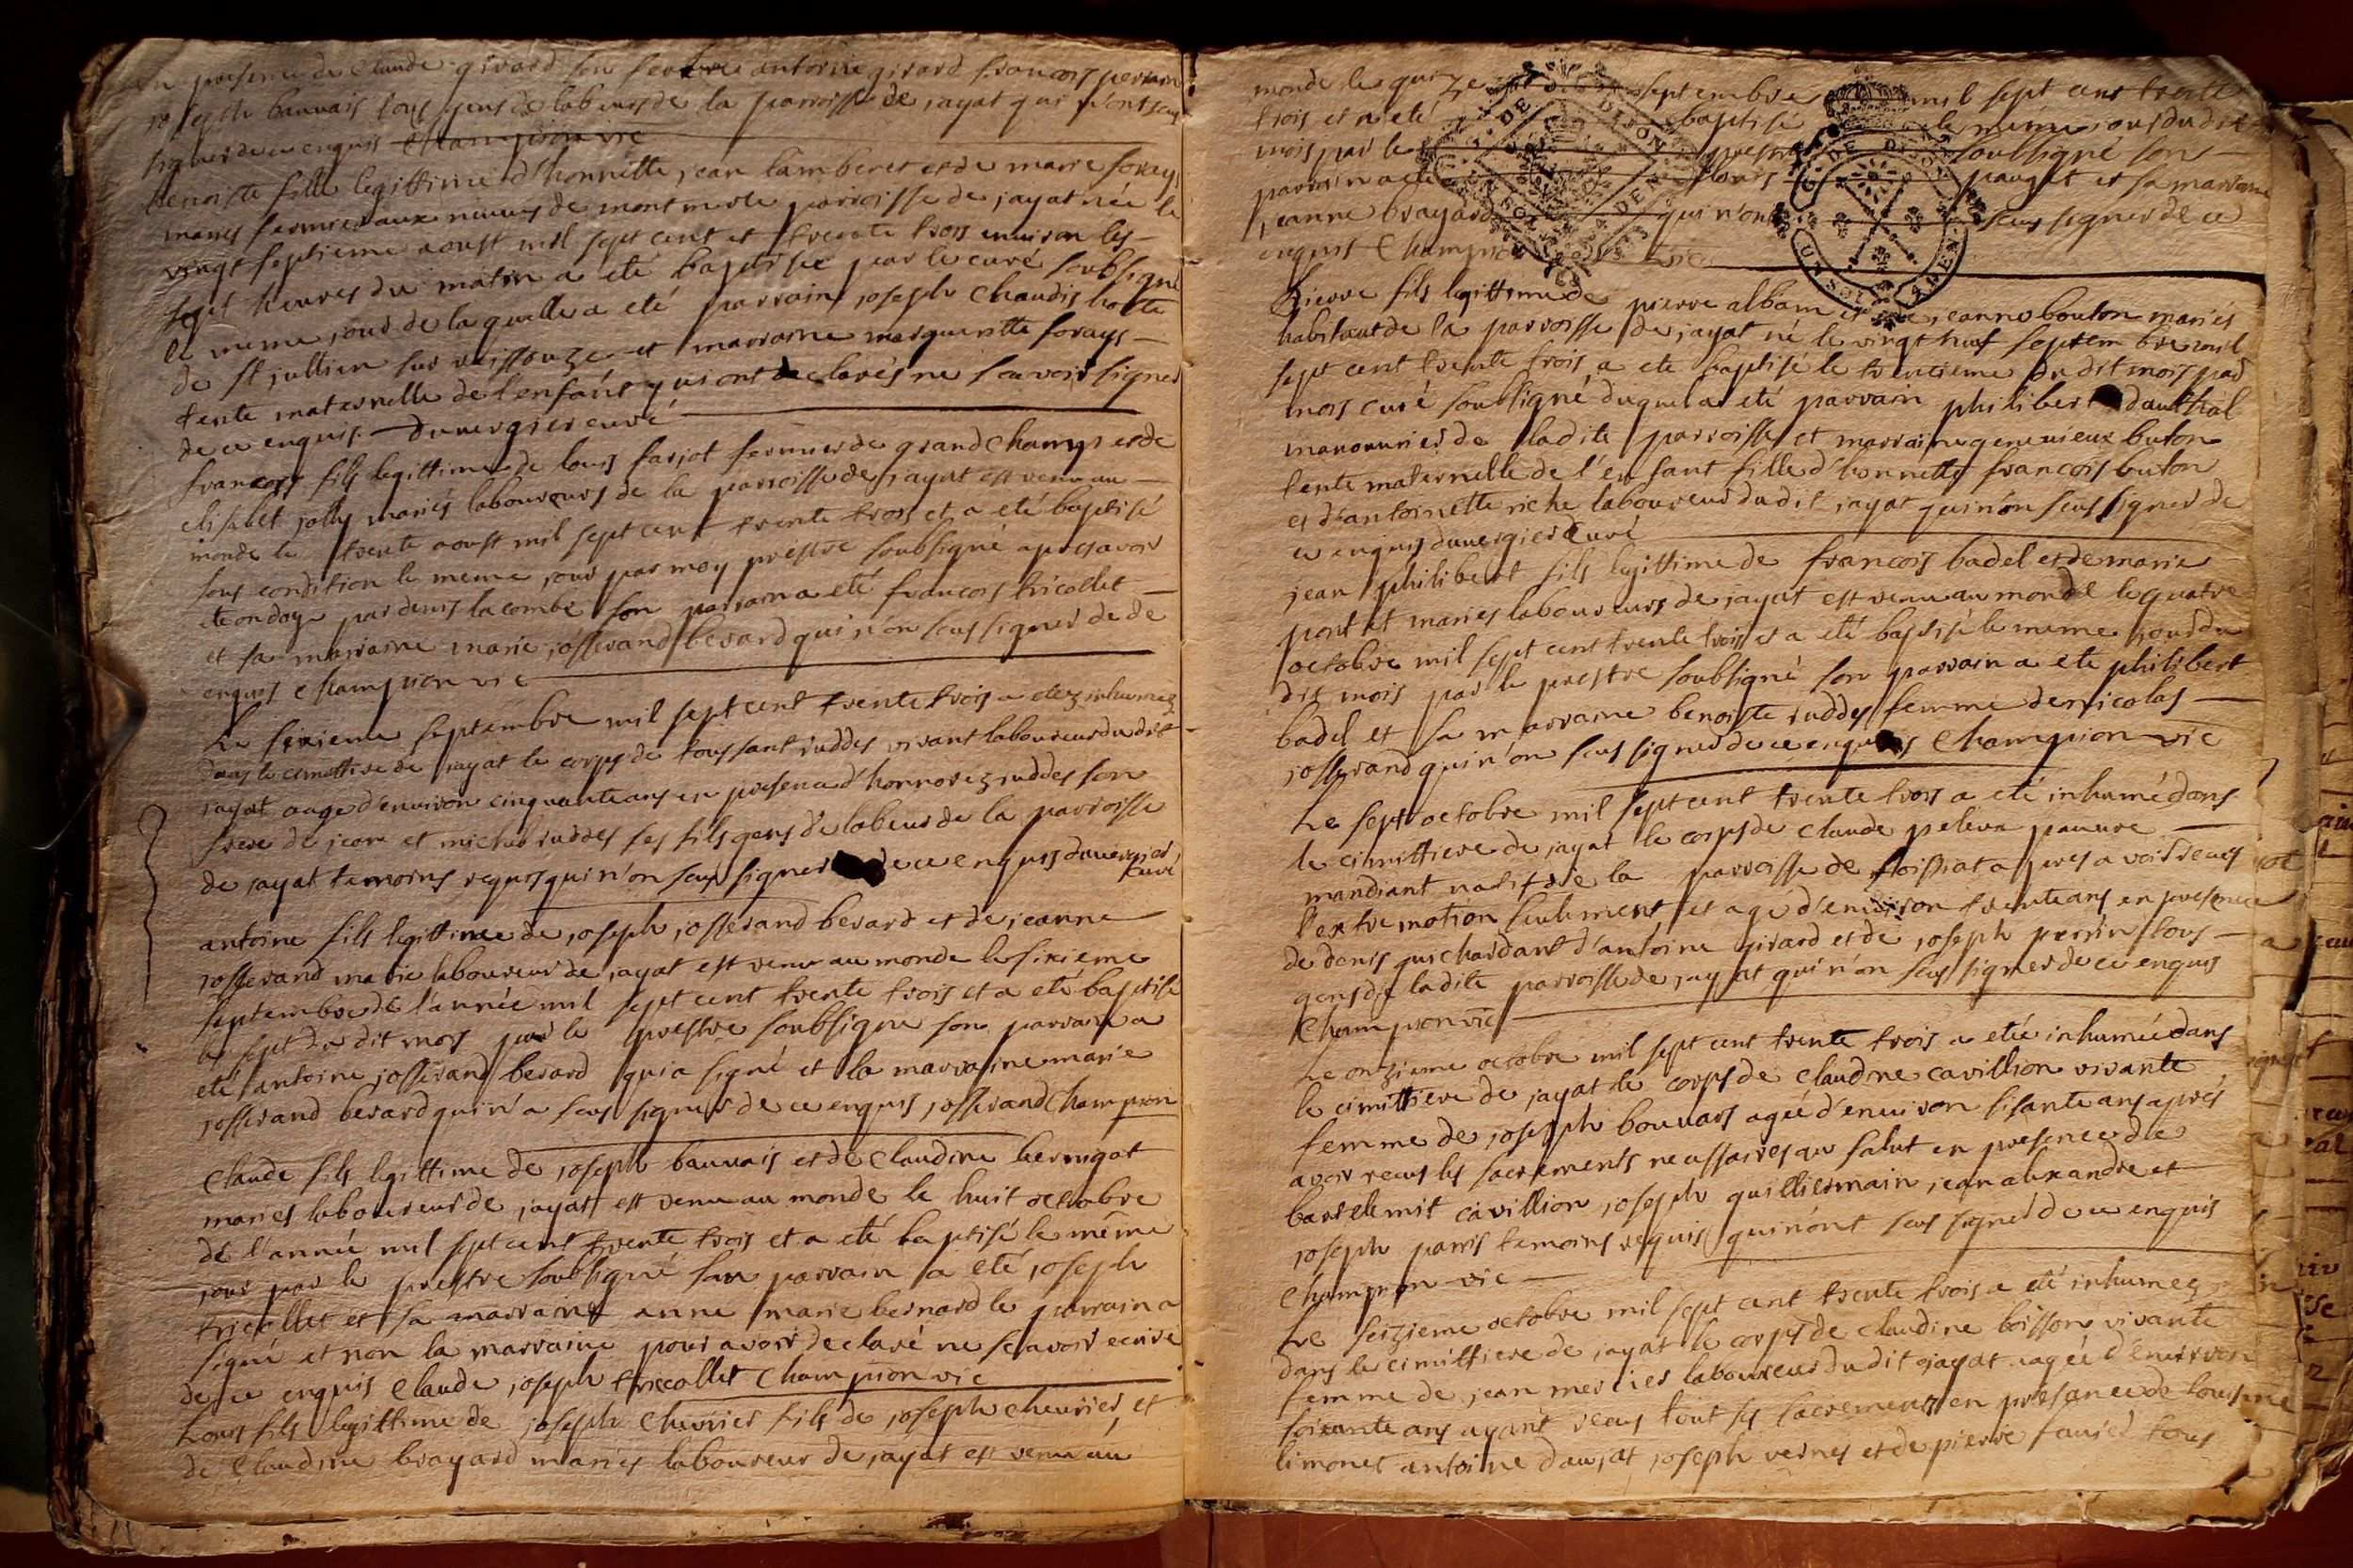 en presence de Claude girard son frere antoine girard francois perrin
joseph bauvais tous gens de labeurs de la parroisse de jayat qui n'ont sceu
signer de ce enquis Champion vic
benoiste fille legittime d'honnette jean lamberet et de marie forays
maries fermier aux mures de mont merle parroisse de jayat née le
vingt septieme aoust mil sept cent et trente trois environ les
sept heures du matin a eté baptisée par le curé soubsigné
le meme jour de laquelle a eté parrain joseph Chaudis hotte
de st jullien sur reissouze et marraine margueritte forays
tente maternelle de l'enfant qui ont declarés ne scavoir signer
de ce enquis. Duvergier curé
francois fils legittime de louis farjot fermier de grand Champ et de
elisabet jolly mariés laboureurs de la parroisse de jayat est venu au
monde le trente aoust mil sept cent trente trois et a eté baptisé
sous condition le meme jour par moy prestre soubsigné apres avoir
ete ondoye par denis lacombe son parrain a eté francois tricollet
et sa marraine marie josserand berard qui n'on sceu signer de
enquis Champion vic
Le sixieme septembre mil sept cent trente trois a etez inhumez
dans le cimettiere de jayat le corps de toussant suddes vivant laboureur du dit
jayat aage d'environ cinquante ans en presence d'honnorez suddes son
frere de jean et michel suddes ses fils gens de labeur de la parroisse
de jayat temoins requis qui n'on sceu signer de ce enquis duvergier
curé
antoine fils legittime de joseph josserand berard et de jeanne
josserand marie laboureur de jayat est venu au monde le sixieme
septembre de l'année mil sept cent trente trois et a eté baptisé
le sept du dit mois par le prestre soubsigné son parrain a
eté antoine josserand berard qui a signé et la marraine marie
josserand berard qui n'a sceu signer de ce enquis josserand Champion
Claude fils legittime de joseph bauvais et de Claudine berrugat
mariés laboureur de jayat est venu au monde le huit octobre
de l'année mil sept cent trente trois et a eté baptisé le même
jour par le prestre soubsigné son parrain a eté joseph
tricollet et sa marraine anne marie bernard le parrain a
signé et non la marraine pour avoir declaré ne scavoir ecrire
de ce enquis Claude joseph triccollet Champion vic
Louis fils legittime de joseph Chevrier fils de joseph chevrier et
de Claudine brayard mariés laboureur de jayat est venu au
monde le quinze septembre mil sept cent trente
trois et a eté baptisé le même jour du dit
mois par le prestre soubsigné son
parrain a eté louis pauget et sa marraine
jeanne brayard qui n'ont sceu signer de ce
enquis Champion vic
Pierre fils legittime de pierre alban et de jeanne bouton mariés
habitant de la parroisse de jayat né le vingt huit septembre mil
sept cent trente trois a ete baptisé le trentieme du dit mois par
mois curé soubsigné duquel a eté parrain philibert dauthal
manouvrier de la dite parroisse et marraine genevieux buton
tente maternelle de l'enfant fille d'honnette francois buton
et d'antoinette riche laboureur du dit jayat qui n'on sceu signer de
ce enquis duvergier curé
jean philibert fils legittime de francois badel et de marie
pont et maries laboureurs de jayat est venu au monde le quatre
octobre mil sept cent trente trois et a eté baptisé le meme jour du
dit mois par le prestre soubsigné son parrain a ete philibert
badel et sa marraine benoiste suddes femme de nicolas
josserand qui n'on sceu signer de ce enquis Champion vic
Le sept octobre mil sept cent trente trois a eté inhumé dans
le cimittiere de jayat le corps de Claude peleux pauvre
mandiant natif de la parroisse de foissiat apres avoir receu
l'extremotion seulement et age d'environ trente ans en presence
de denis guichardant d'antoine girard et de joseph perrin tous
gens de la dite parroisse de jayat qui n'on sceu signer de ce enquis
Champion vic
Le onzieme octobre mil sept cent trente trois a etée inhumée dans
le cimittiere de jayat le corps de Claudine cavillion vivante
femme de joseph bouvars agée d'environ sisante ans après
avoir receu les sacrements necessaires au salut en presence de
bartelemit cavillion joseph guilliermain jean alixandre et
joseph parris temoins requis qui n'ont sceu signer de ce enquis
Champion vic
Le seizieme octobre mil sept cent trente trois a eté inhumez
dans le cimittiere de jayat le corps de Claudine boisson vivante
femme de jean mercier laboureur du dit jayat agée d'environ
soixante ans ayant receu tout ses sacrement en presance de
limonet antoine daujat joseph vernes et de pierre favier tous